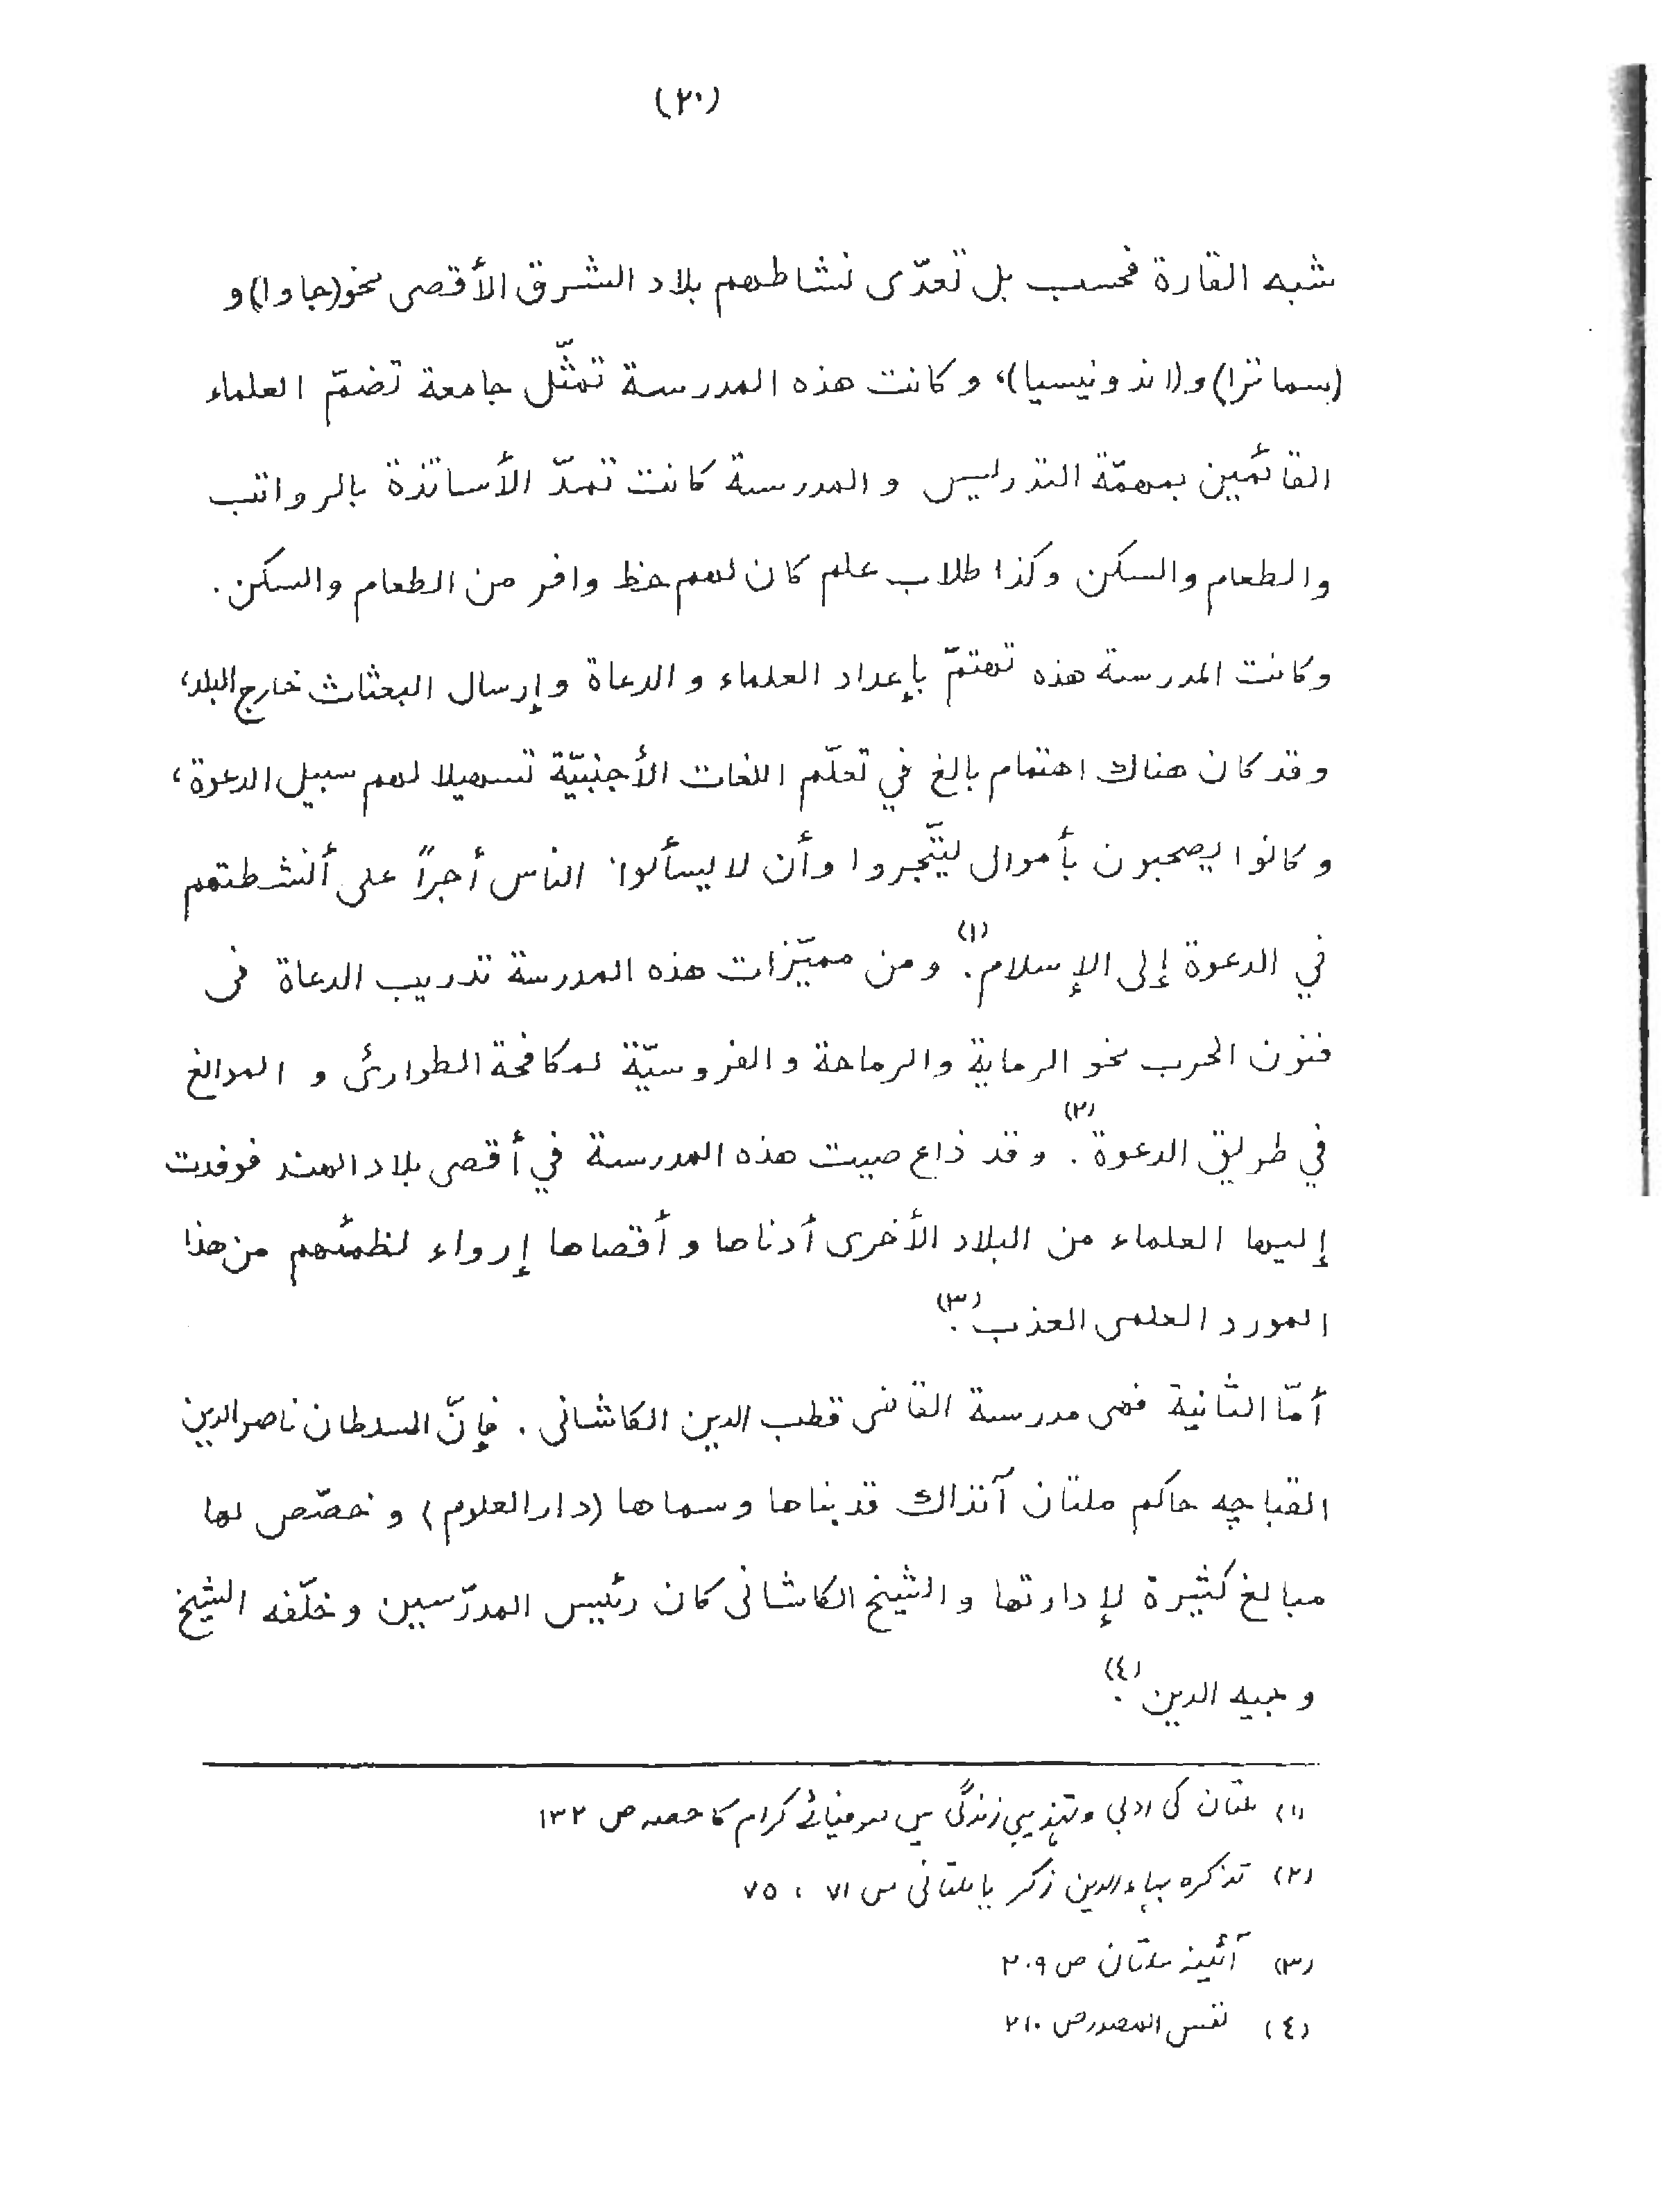 (٢٠)
شبه القارة فحسب بل تعدّى نشاطهم بلاد الشرق الأقصى نحو(جاوا) و
(سماترا) و(اندونيسيا)، وكانت هذه المدرسة تمثّل جامعة تضمّ العلماء
القائمين بمهمّة التدريس والمدرسة كانت تمدّ الأساتذة بالرواتب
والطعام والسكن وكذا طلاب علم كان لهم حظ وافر من الطعام والسكن.
وكانت المدرسة هذه تهتمّ بإعداد العلماء والدعاة وإرسال البعثات خارج البلاد،
وقد كان هناك اهتمام بالغ في تعلّم اللغات الأجنبيّة تسهيلا لهم سبيل الدعوة،
وكانوا يصحبون بأموال ليتّجروا وأن لا يسألوا الناس أجراً على أنشطتهم
في الدعوة إلى الإسلام.(١) ومن مميّزات هذه المدرسة تدريب الدعاة فى
فنون الحرب نحو الرماية والرماحة والفروسيّة لمكافحة الطوارئ و الموانع
في طريق الدعوة.(٢) وقد ذاع صيت هذه المدرسة في أقصى بلاد الهند فوفدت
إليها العلماء من البلاد الأخرى أدناها وأقصاها إرواء لظمئهم من هذا
المورد العلمى العذب.(٣)
أمّا الثانية فهى مدرسة القاضى قطب الدين الكاشانى. فإنّ السلطان ناصر الدين
القباچه حاكم ملتان آنذاك قد بناها وسماها (دار العلوم) وخصّص لها
مبالغ كثيرة لإدارتها والشيخ الكاشانى كان رئيس المدرّسين وخلّفه الشيخ
وجيه الدين.(٤)
(١) ملتان کی ادبی وتہذیبی زندگی میں صوفیائے کرام کا حصہ ص ١٣٢
(٢) تذكره بہاء الدين زكريا ملتانی ص ٧١، ٧٥
(٣) آئینہ ملتان ص ٢٠٩
(٤) نفس المصدر ص ٢١٠